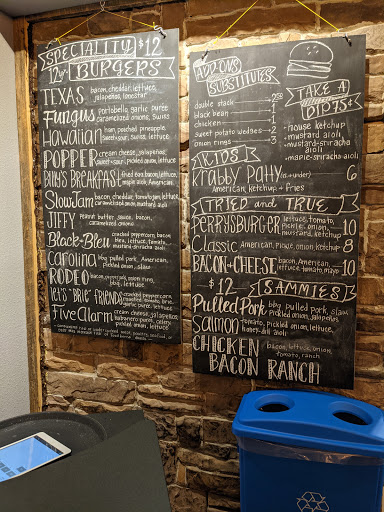 SPECIALITY $12
BURGERS
TEXAS bacon, cheddar, lettuce,
jalapeños, tomato
Fungus portobello, garlic puree
caramelized onions, Swiss
Hawaiian ham, poached pineapple,
sweet+sour, swiss, lettuce
POPPER cream cheese, jalapeños,
sweet+sour, pickled onion, lettuce
BILLY'S BREAKFAST fried egg, bacon, lettuce,
maple aioli, American
SlowJam bacon, cheddar, tomato jam, lettuce,
caramelized onion, mustard aioli
JIFFY Peanut butter, sauce, bacon,
caramelized onions
Black-Bleu cracked peppercorn, bacon,
bleu, lettuce, tomato,
mustard-sriracha aioli
Carolina bbq pulled pork, American,
pickled onion, slaw
RODEO bacon, pepperjack, onion ring,
bbq, lettuce
let's "BRIE" FRIENDS cracked peppercorn,
brie, garlic
puree, lettuce
Five Alarm cream cheese, jalapeños,
habanero puree,
pickled onion, lettuce
ADD-ONS
SUBSTITUTES
double stack
black bean
chicken
sweet potato wedges - 2
onion rings - 3
TAKE A
DIP 75¢
• house ketchup
• mustard aioli
• mustard-sriracha
aioli
• maple-sriracha aioli
KIDS
Krabby Patty 6
American, ketchup + fries
TRIED and TRUE
PERRYSBURGER lettuce, tomato,
pickle, onion,
mustard, ketchup 10
Classic American, pickle, onion, ketchup 8
BACON+CHEESE bacon, American,
lettuce, tomato, mayo 10
$12 SAMMIES
Pulled Pork bbq pulled pork, slaw
pickled onion, jalapeños
Salmon tomato, pickled onion, lettuce,
mustard-dill aioli
CHICKEN bacon, lettuce, onion,
tomato, ranch
BACON RANCH